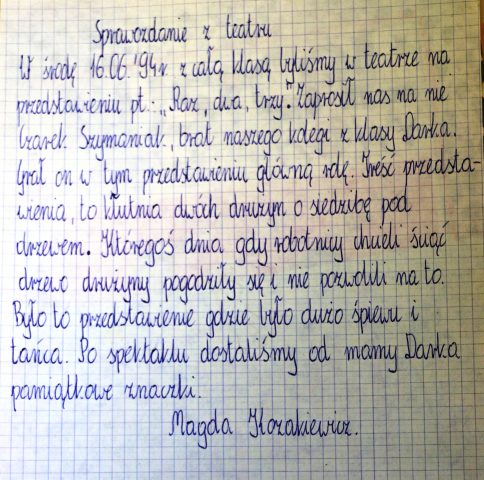 Sprawozdanie z teatru
W środę 16.06.'94r. z całą klasą byliśmy w teatrze na
przedstawieniu pt.: „Raz, dwa, trzy". Zaprosił nas na nie
Czarek Szymaniak, brat naszego kolegi z klasy Darka.
Grał on w tym przedstawieniu główną rolę. Treść przedsta-
wienia, to kłutnia dwóch drużyn o siedzibę pod
drzewem. Któregoś dnia gdy robotnicy chcieli ściąć
drzewo drużyny pogodziły się i nie pozwolili na to.
Było to przedstawienie gdzie było dużo śpiewu i
tańca. Po spektaklu dostaliśmy od mamy Darka
pamiątkowe znaczki.
Magda Kozakiewicz.